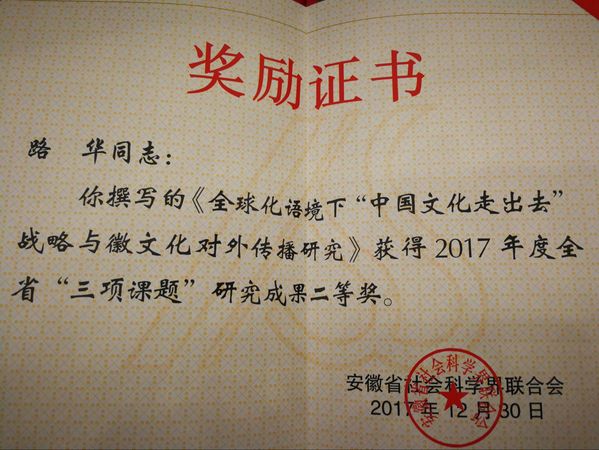 奖励证书
路 华同志：
你撰写的《全球化语境下“中国文化走出去”
战略与徽文化对外传播研究》获得2017年度全
省“三项课题”研究成果二等奖。
安徽省社会科学界联合会
2017年12月30日
安徽省社会科学界联合会